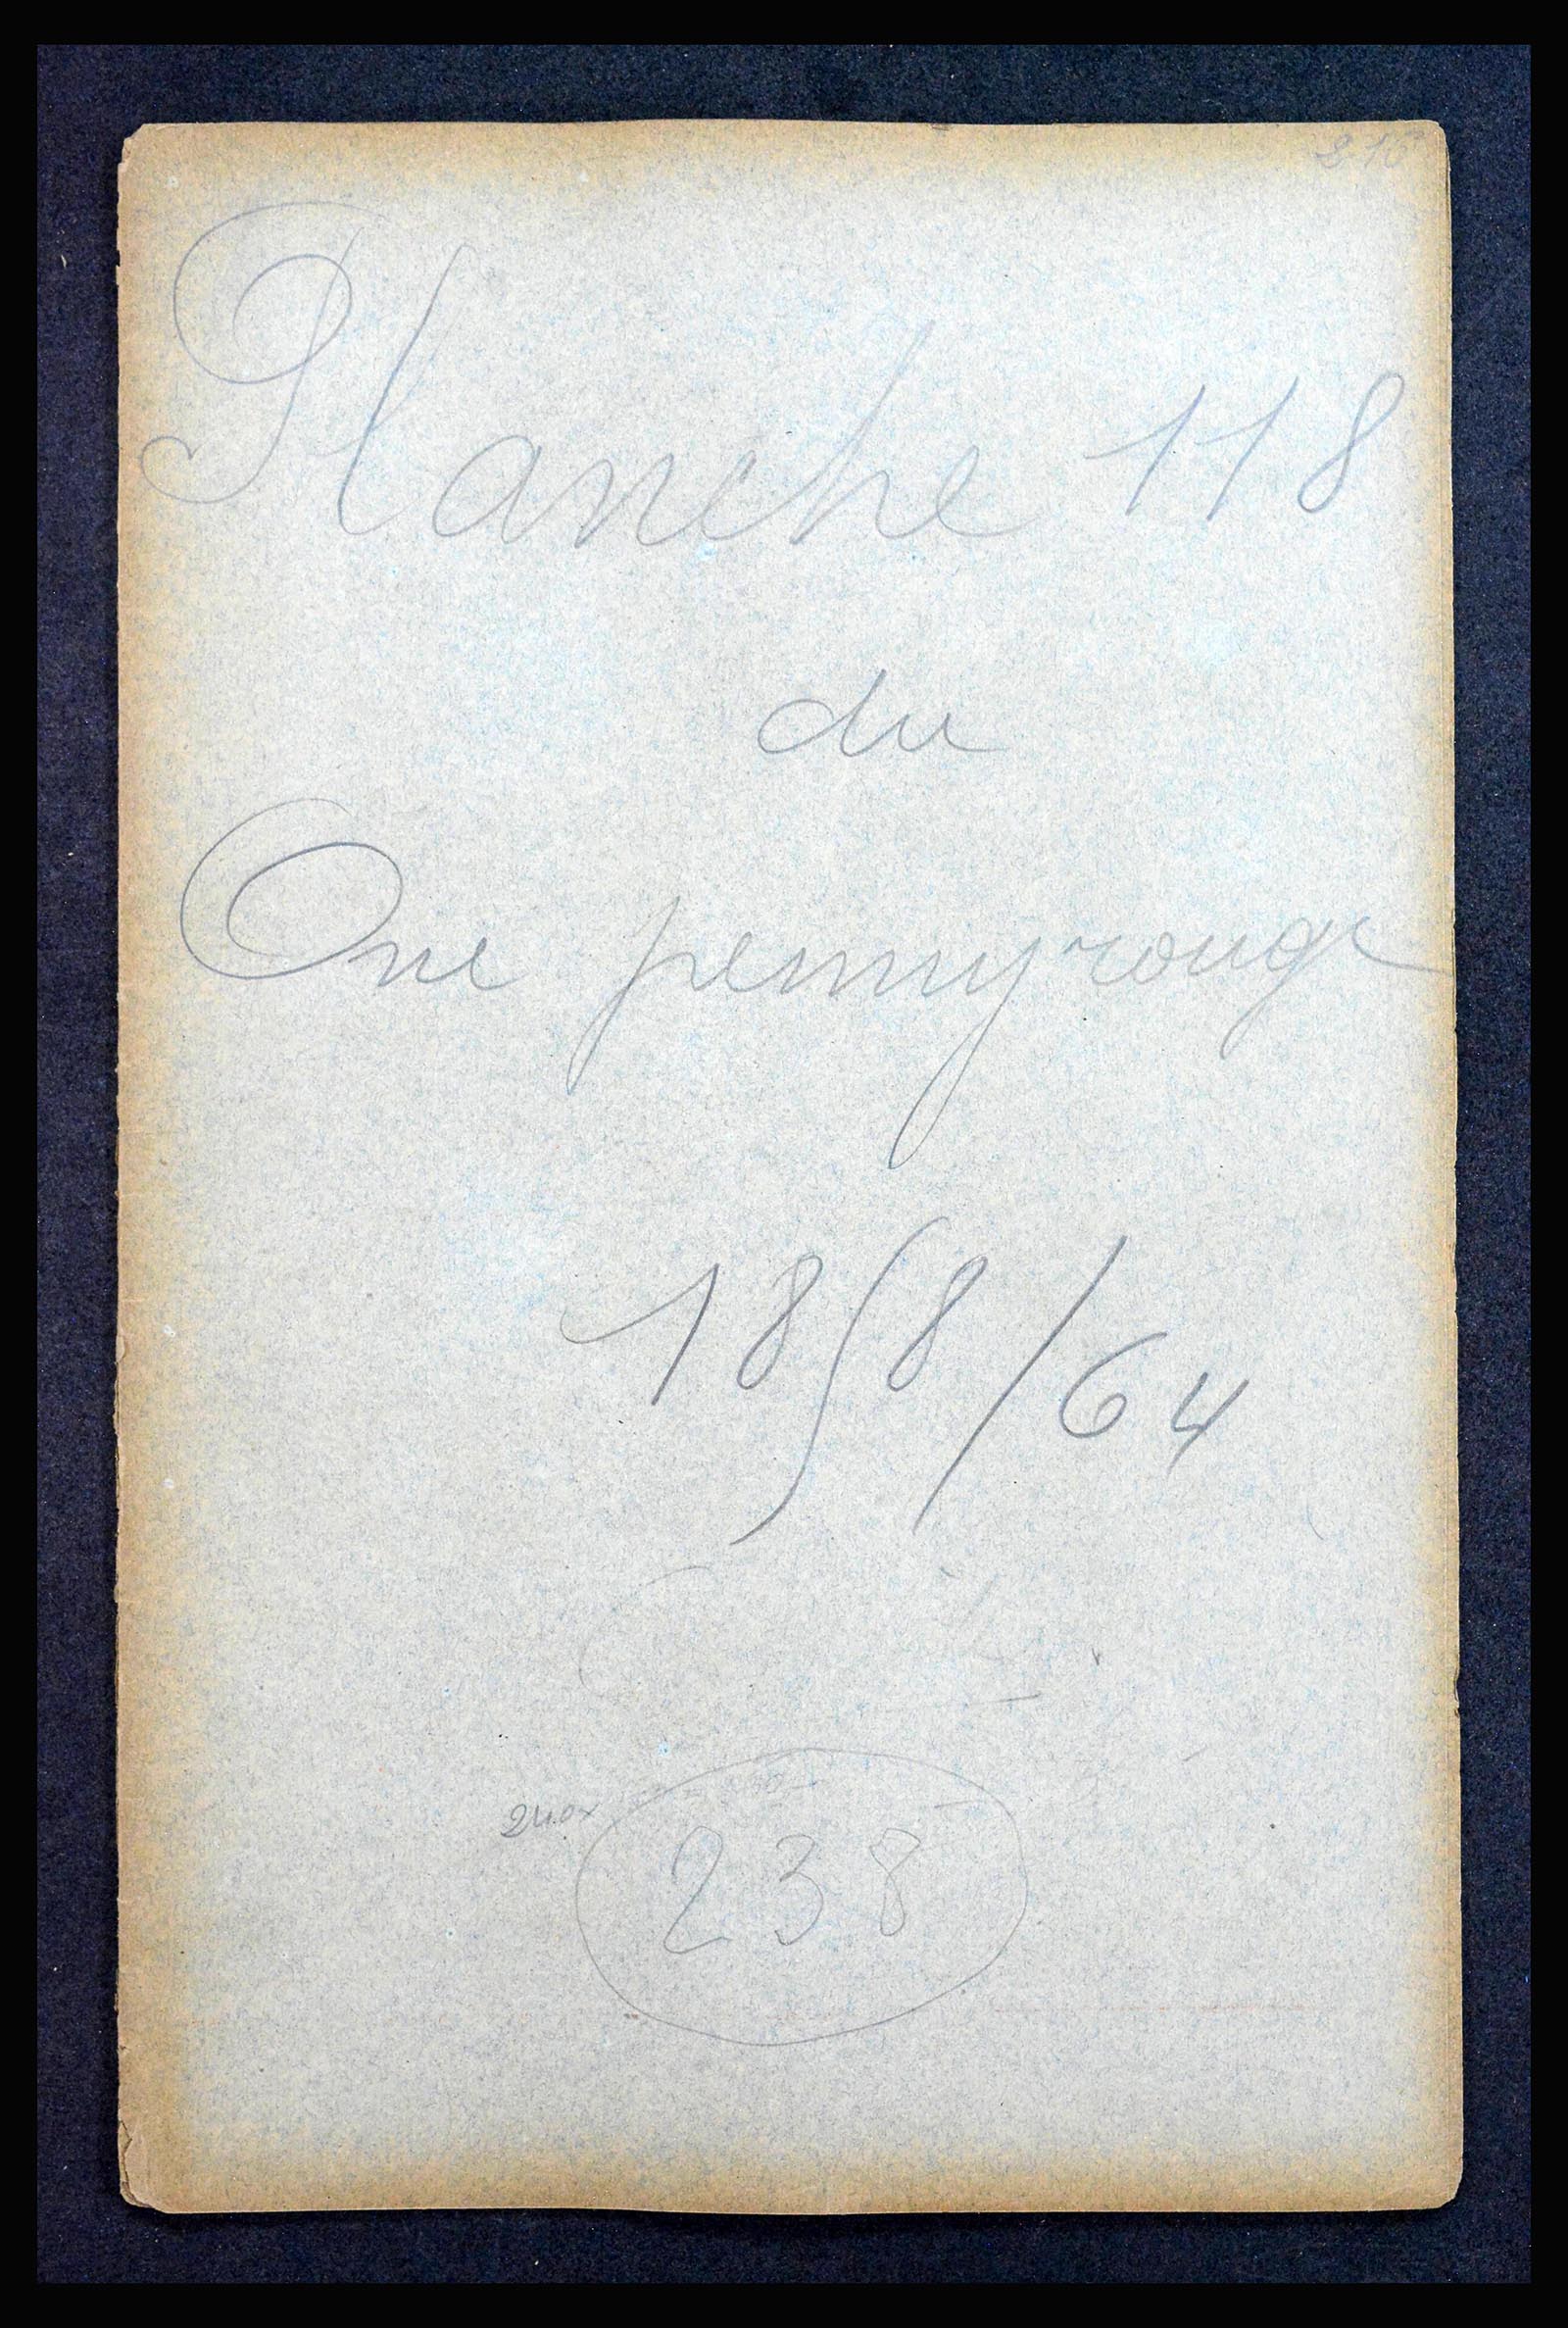 Planche 118
du
One penny rouge
1858/64
240x
238